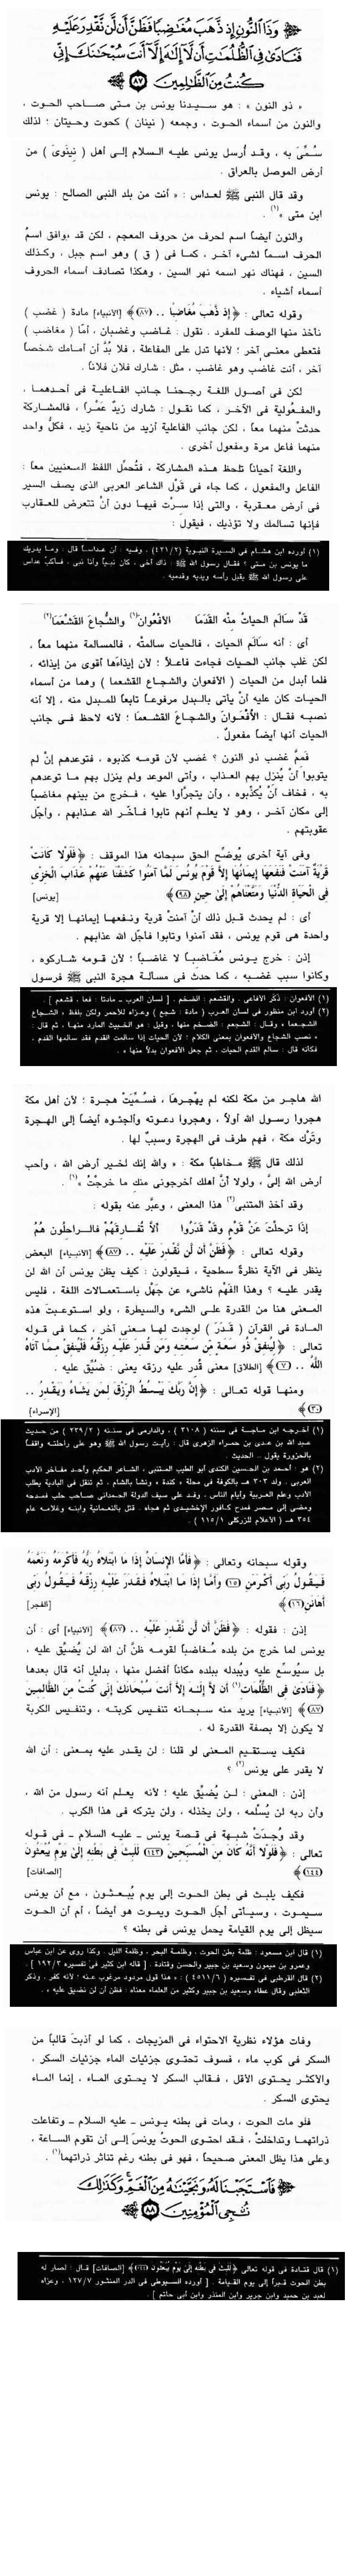 وَذَا ٱلنُّونِ إِذ ذَّهَبَ مُغَٰضِبًا فَظَنَّ أَن لَّن نَّقْدِرَ عَلَيْهِ
فَنَادَىٰ فِى ٱلظُّلُمَٰتِ أَن لَّآ إِلَٰهَ إِلَّآ أَنتَ سُبْحَٰنَكَ إِنِّى
كُنتُ مِنَ ٱلظَّٰلِمِينَ ﴿٨٧﴾
« ذو النون » : هو سيدنا يونس بن متى صاحب الحوت ،
والنون من أسماء الحوت ، وجمعه ( نينان ) كحوت وحيتان ؛ لذلك
سُمِّىَ به ، وقد أُرسل يونس عليه السلام إلى أهل ( نِينَوىَ ) من
أرض الموصل بالعراق .
وقد قال النبى ﷺ لعداس : « أنت من بلد النبى الصالح : يونس
ابن متى »(١) .
والنون أيضاً اسم لحرف من حروف المعجم ، لكن قد يوافق اسمُ
الحرف اسماً لشىء آخر ، كما فى ( ق ) وهو اسم جبل ، وكذلك
السين ، فهناك نهر اسمه نهر السين ، وهكذا تصادف أسماء الحروف
أسماء أشياء .
وقوله تعالى : ﴿إِذ ذَّهَبَ مُغَاضِبًا .. (٨٧)﴾ [الأنبياء] مادة ( غضب )
نأخذ منها الوصف للمفرد . نقول : غاضب وغضبان ، أمّا ( مغاضب )
فتعطى معنى آخر ؛ لأنها تدل على المفاعلة ، فلا بُدَّ أن أمامك شخصاً
آخر ، أنت غاضب وهو غاضب ، مثل : شارك فلان فلاناً .
لكن فى أصول اللغة رجحنا جانب الفاعلية فى أحدهما ،
والمفعولية فى الآخر ، كما نقول : شارك زيدٌ عَمْراً ، فالمشاركة
حدثتْ منهما معاً ، لكن جانب الفاعلية أزيد من ناحية زيد ، فكلُّ واحد
منهما فاعل مرة ومفعول أخرى .
واللغة أحياناً تلحظ هذه المشاركة ، فتُحمِّل اللفظ المعنيين معاً :
الفاعل والمفعول ، كما جاء فى قَوْل الشاعر العربى الذى يصف السير
فى أرض معقربة ، والتى إذا سِرْتَ فيها دون أنْ تتعرض للعقارب
فإنها تسالمك ولا تؤذيك ، فيقول :
(١) أورده ابن هشام فى السيرة النبوية (٤٢١/٢) ، وفيه : أن عداساً قال : وما يدريك
ما يونس بن متى ؟ فقال رسول الله ﷺ : ذاك أخى ، كان نبياً وأنا نبى ، فأكبَّ عداس
على رسول الله ﷺ يقبل رأسه ويديه وقدميه .
قَدْ سَالَمَ الحياتُ مِنْه القَدَمَا الأفْعُوَانَ(١) والشُّجاعَ القَشْعَمَا(٢)
أى : أنه سَالَم الحيات ، فالحيات سالمتْه ، فالمسالمة منهما معاً ،
لكن غلب جانب الحيات فجاءت فاعلاً ؛ لأن إيذاءَها أقوى من إيذائه ،
فلما أبدل من الحيات ( الأفعوان والشجاع القشعما ) وهما من أسماء
الحيات كان عليه أنْ يأتى بالبدل مرفوعاً تابعاً للمبدل منه ، إلا أنه
نصبه فقال : الأُفْعُوانَ والشجاعَ القَشْعما ؛ لأنه لاحظ فى جانب
الحيات أنها أيضاً مفعولٌ .
فَمِمَّ غضب ذو النون ؟ غضب لأن قومه كذبوه ، فتوعدهم إنْ لم
يتوبوا أنْ يُنزِل بهم العذاب ، وأتى الموعد ولم ينزل بهم ما توعدهم
به ، فخاف أنْ يُكذِّبوه ، وأن يتجرَّأوا عليه ، فخرج من بينهم مغاضباً
إلى مكان آخر ، وهو لا يعلم أنهم تابوا فأخّر الله عذابهم ، وأجّل
عقوبتهم .
وفى آية أخرى يُوضِّح الحق سبحانه هذا الموقف : ﴿فَلَوْلا كَانَتْ
قَرْيَةٌ آمَنَتْ فَنَفَعَهَا إِيمَانُهَا إِلاَّ قَوْمَ يُونُسَ لَمَّا آمَنُوا كَشَفْنَا عَنْهُمْ عَذَابَ الْخِزْىِ
فِى الْحَيَاةِ الدُّنْيَا وَمَتَّعْنَاهُمْ إِلَىٰ حِينٍ (٩٨)﴾ [يونس]
أى : لم يحدث قبل ذلك أنْ آمنتْ قرية ونفعها إيمانها إلا قرية
واحدة هى قوم يونس ، فقد آمنوا وتابوا فأجّل الله عذابهم .
إذن : خرج يونس مُغَاضباً لا غاضباً ؛ لأن قومه شاركوه ،
وكانوا سبب غضبه ، كما حدث فى مسألة هجرة النبى ﷺ فرسول
(١) الأفعوان : ذكر الأفاعى . والقشعم : الضخم . [ لسان العرب - مادتا : فعا ، قشعم ] .
(٢) أورد ابن منظور فى لسان العرب ( مادة : شجع ) وعزاه للأحمر ولكن بلفظ « الشجاع
الشجعما » وقال : الشجعم : الضخم منها ، وقيل : هو الخبيث المارد منها ، ثم قال :
« نصب الشجاع والأفعوان بمعنى الكلام ؛ لأن الحيات إذا سالمت القدم فقد سالمها القدم ،
فكأنه قال : سالم القدم الحيات ، ثم جعل الأفعوان بدلاً منها » .
الله هاجر من مكة لكنه لم يهْجرها ، فسُمِّيَتْ هجرة ؛ لأن أهل مكة
هجروا رسول الله أولاً ، وهجروا دعوته وألجئوه أيضاً إلى الهجرة
وتَرْك مكة ، فهم طرف فى الهجرة وسببٌ لها .
لذلك قال ﷺ مخاطباً مكة : « والله إنك لخير أرض الله ، وأحب
أرض الله إلىَّ ، ولولا أنَّ أهلك أخرجونى منك ما خرجتُ »(١) .
وقد أخذ المتنبى(٢) هذا المعنى ، وعبَّر عنه بقوله :
إذَا ترحلْتَ عَنْ قَوْمٍ وقَدْ قَدَرُوا ألاَّ تُفَارِقَهُمْ فالرَاحِلُون هُمُ
وقوله تعالى : ﴿فَظَنَّ أَن لَّن نَّقْدِرَ عَلَيْهِ .. (٨٧)﴾ [الأنبياء] البعض
ينظر فى الآية نظرةً سطحية ، فيقولون : كيف يظن يونس أن الله لن
يقدر عليه ؟ وهذا الفَهْم ناشىء عن جَهْل باستعمالات اللغة ، فليس
المعنى هنا من القدرة على الشىء والسيطرة ، ولو استوعبتَ هذه
المادة فى القرآن ( قَدَرَ ) لوجدت لها معنى آخر ، كما فى قوله
تعالى : ﴿لِيُنفِقْ ذُو سَعَةٍ مِّن سَعَتِهِ وَمَن قُدِرَ عَلَيْهِ رِزْقُهُ فَلْيُنفِقْ مِمَّا آتَاهُ
اللَّهُ .. (٧)﴾ [الطلاق] معنى قُدِر عليه رزقه يعنى : ضُيِّق عليه .
ومنها قوله تعالى : ﴿إِنَّ رَبَّكَ يَبْسُطُ الرِّزْقَ لِمَن يَشَاءُ وَيَقْدِرُ ..
(٣٠)﴾ [الإسراء]
(١) أخرجه ابن ماجة فى سننه ( ٣١٠٨ ) ، والدارمى فى سننه ( ٢٣٩/٢ ) من حديث
عبد الله بن عدى بن حمراء الزهرى قال : رأيت رسول الله ﷺ وهو على راحلته واقفاً
بالحزورة يقول .. الحديث .
(٢) هو : أحمد بن الحسين الكندى أبو الطيب المتنبى ، الشاعر الحكيم وأحد مفاخر الأدب
العربى . ولد ٣٠٣ هـ بالكوفة فى محلة « كندة » ، ونشأ بالشام ، ثم تنقل فى البادية يطلب
الأدب وعلم العربية وأيام الناس ، وفد على سيف الدولة الحمدانى صاحب حلب فمدحه
ومضى إلى مصر فمدح كافور الإخشيدى ثم هجاه . قتل بالنعمانية وابنه وغلامه عام
٣٥٤ هـ ( الأعلام للزركلى ١١٥/١ ) .
وقوله سبحانه وتعالى : ﴿فَأَمَّا الإِنسَانُ إِذَا مَا ابْتَلاهُ رَبُّهُ فَأَكْرَمَهُ وَنَعَّمَهُ
فَيَقُولُ رَبِّى أَكْرَمَنِ (١٥) وَأَمَّا إِذَا مَا ابْتَلاهُ فَقَدَرَ عَلَيْهِ رِزْقَهُ فَيَقُولُ رَبِّى
أَهَانَنِ (١٦)﴾ [الفجر]
إذن : فقوله : ﴿فَظَنَّ أَن لَّن نَّقْدِرَ عَلَيْهِ .. (٨٧)﴾ [الأنبياء] أى : أن
يونس لما خرج من بلده مُغاضباً لقومه ظنَّ أن الله لن يُضيِّق عليه ،
بل سيُوسِّع عليه ويُبدله ببلده مكاناً أفضل منها ، بدليل أنه قال بعدها
﴿فَنَادَىٰ فِى الظُّلُمَاتِ(١) أَن لاَّ إِلَٰهَ إِلاَّ أَنتَ سُبْحَانَكَ إِنِّى كُنتُ مِنَ الظَّالِمِينَ
(٨٧)﴾ [الأنبياء] يريد منه سبحانه تنفيس كربته ، وتنفيس الكربة
لا يكون إلا بصفة القدرة له .
فكيف يستقيم المعنى لو قلنا : لن يقدر عليه بمعنى : أن الله
لا يقدر على يونس(٢) ؟
إذن : المعنى : لن يُضيِّق عليه ؛ لأنه يعلم أنه رسول من الله ،
وأن ربه لن يُسلْمه ، ولن يخذله ، ولن يتركه فى هذا الكرب .
وقد وُجِدَتْ شبهة فى قصة يونس - عليه السلام - فى قوله
تعالى : ﴿فَلَوْلا أَنَّهُ كَانَ مِنَ الْمُسَبِّحِينَ (١٤٣) لَلَبِثَ فِى بَطْنِهِ إِلَىٰ يَوْمِ يُبْعَثُونَ
(١٤٤)﴾ [الصافات]
فكيف يلبث فى بطن الحوت إلى يوم يُبعثون ، مع أن يونس
سيموت ، وسيأتى أجَل الحوت ويموت هو أيضاً ، أم أن الحوت
سيظل إلى يوم القيامة يحمل يونس فى بطنه ؟
(١) قال ابن مسعود : ظلمة بطن الحوت ، وظلمة البحر ، وظلمة الليل . وكذا روى عن ابن عباس
وعمرو بن ميمون وسعيد بن جبير والحسن وقتادة . [ قاله ابن كثير فى تفسيره ١٩٢/٣ ] .
(٢) قال القرطبى فى تفسيره ( ٤٥١١/٦ ) : « هذا قول مردود مرغوب عنه ؛ لأنه كفر ، وذكر
الثعلبى وقال عطاء وسعيد بن جبير وكثير من العلماء معناه : فظن أن لن نضيق عليه » .
وفات هؤلاء نظرية الاحتواء فى المزيجات ، كما لو أذبتَ قالباً من
السكر فى كوب ماء ، فسوف تحتوى جزئيات الماء جزئيات السكر ،
والأكثر يحتوى الأقل ، فقالب السكر لا يحتوى الماء ، إنما الماء
يحتوى السكر .
فلو مات الحوت ، ومات فى بطنه يونس - عليه السلام - وتفاعلت
ذراتهما وتداخلتْ ، فقد احتوى الحوتُ يونسَ إلى أن تقوم الساعة ،
وعلى هذا يظل المعنى صحيحاً ، فهو فى بطنه رغم تناثر ذراتهما(١) .
فَٱسْتَجَبْنَا لَهُۥ وَنَجَّيْنَٰهُ مِنَ ٱلْغَمِّ وَكَذَٰلِكَ
نُۨجِى ٱلْمُؤْمِنِينَ ﴿٨٨﴾
(١) قال قتادة فى قوله تعالى ﴿لَلَبِثَ فِى بَطْنِهِ إِلَىٰ يَوْمِ يُبْعَثُونَ (١٤٤)﴾ [الصافات] قال : لصار له
بطن الحوت قبراً إلى يوم القيامة . [ أورده السيوطى فى الدر المنثور ١٢٧/٧ ، وعزاه
لعبد بن حميد وابن جرير وابن المنذر وابن أبى حاتم ] .